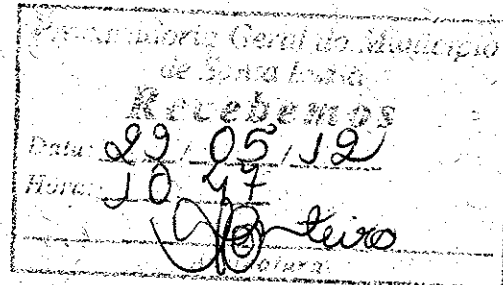 Procuradoria Geral do Município
de Santa Luzia
Recebemos
Data: 22 / 05 / 12
Hora: 10 47
Monteiro